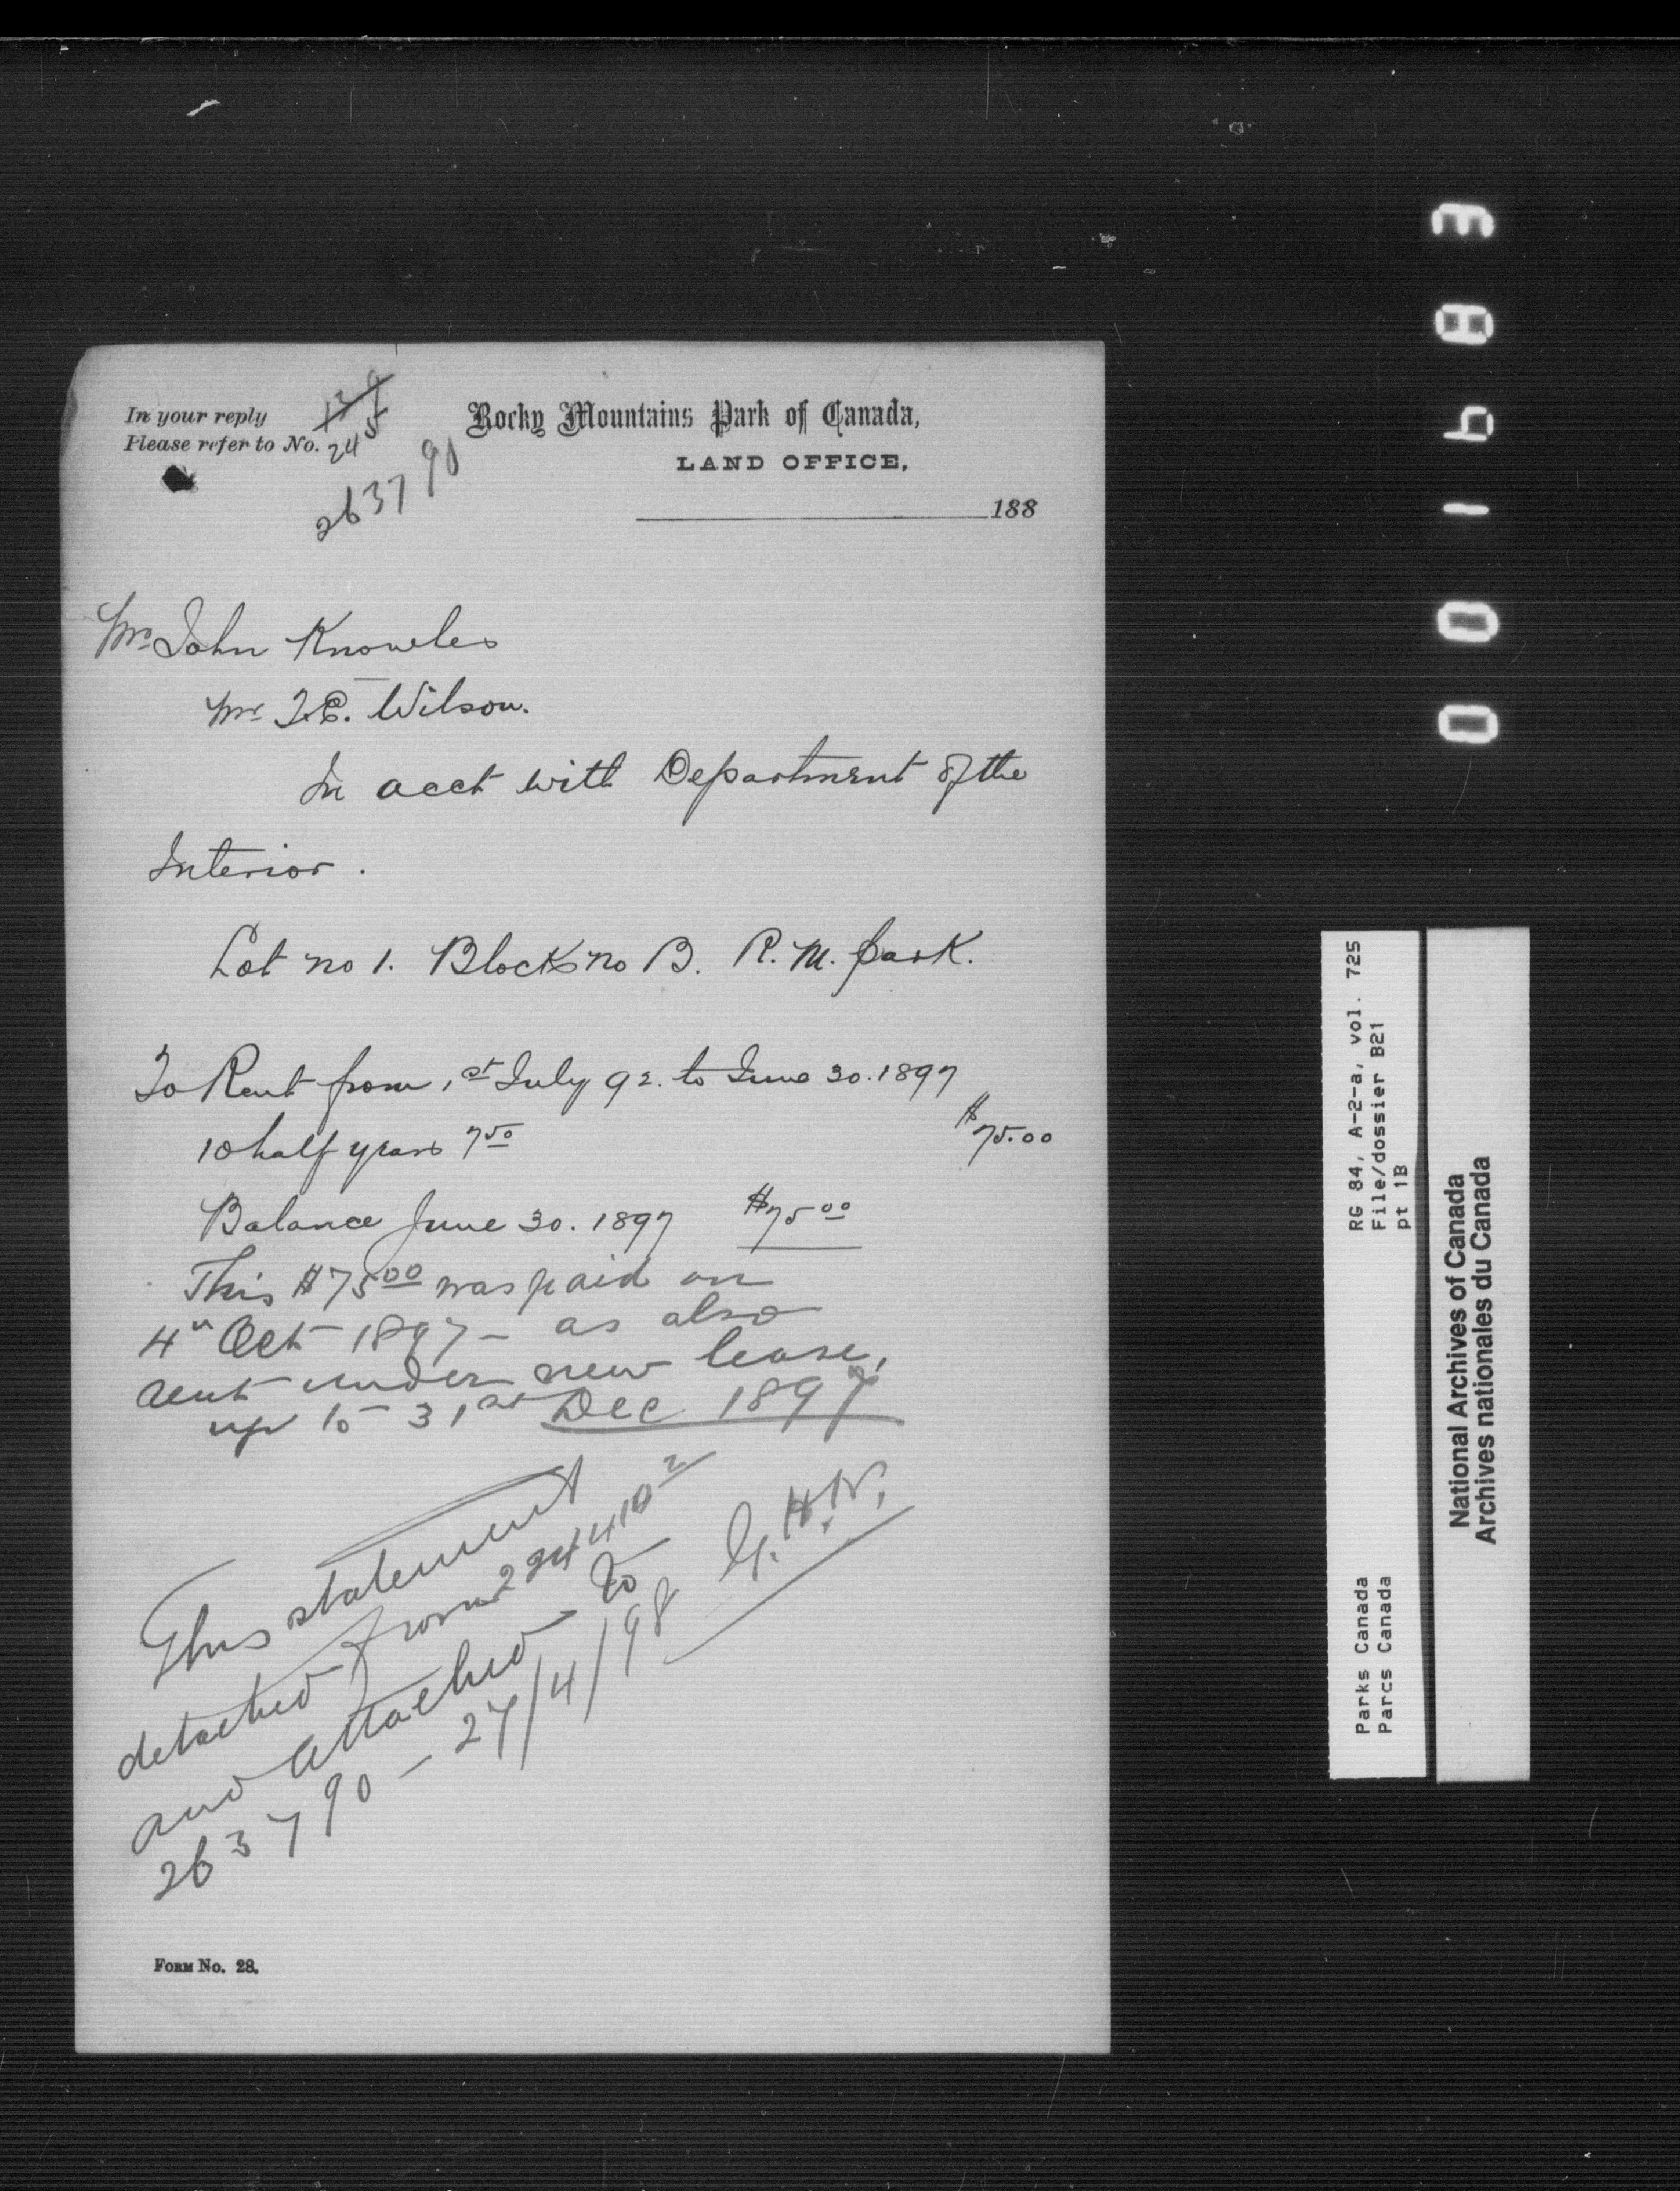 In your reply
Please refer to No.
245
263790
Rocky Mountains Park of Canada,
LAND OFFICE,
188
Mr John Knowles
Mr T.E. Wilson.
In acct with Department of the
Interior.
Lot no 1. Block no B. R. M. park.
To Rent from 1st July 92. to June 30. 1897
10 half years 7 50 $75.00
Balance June 30. 1897 $75 00
This $75 00 was paid on
4th Oct 1897 - as also
rent under new lease,
up to 31st Dec 1897
This statement
detached from
and attached to
263790 - 27/4/98
FORM No. 28.
001683
RG 84, A-2-a, vol. 725
File/dossier B21
pt 1B
Parks Canada
Parcs Canada
National Archives of Canada
Archives nationales du Canada